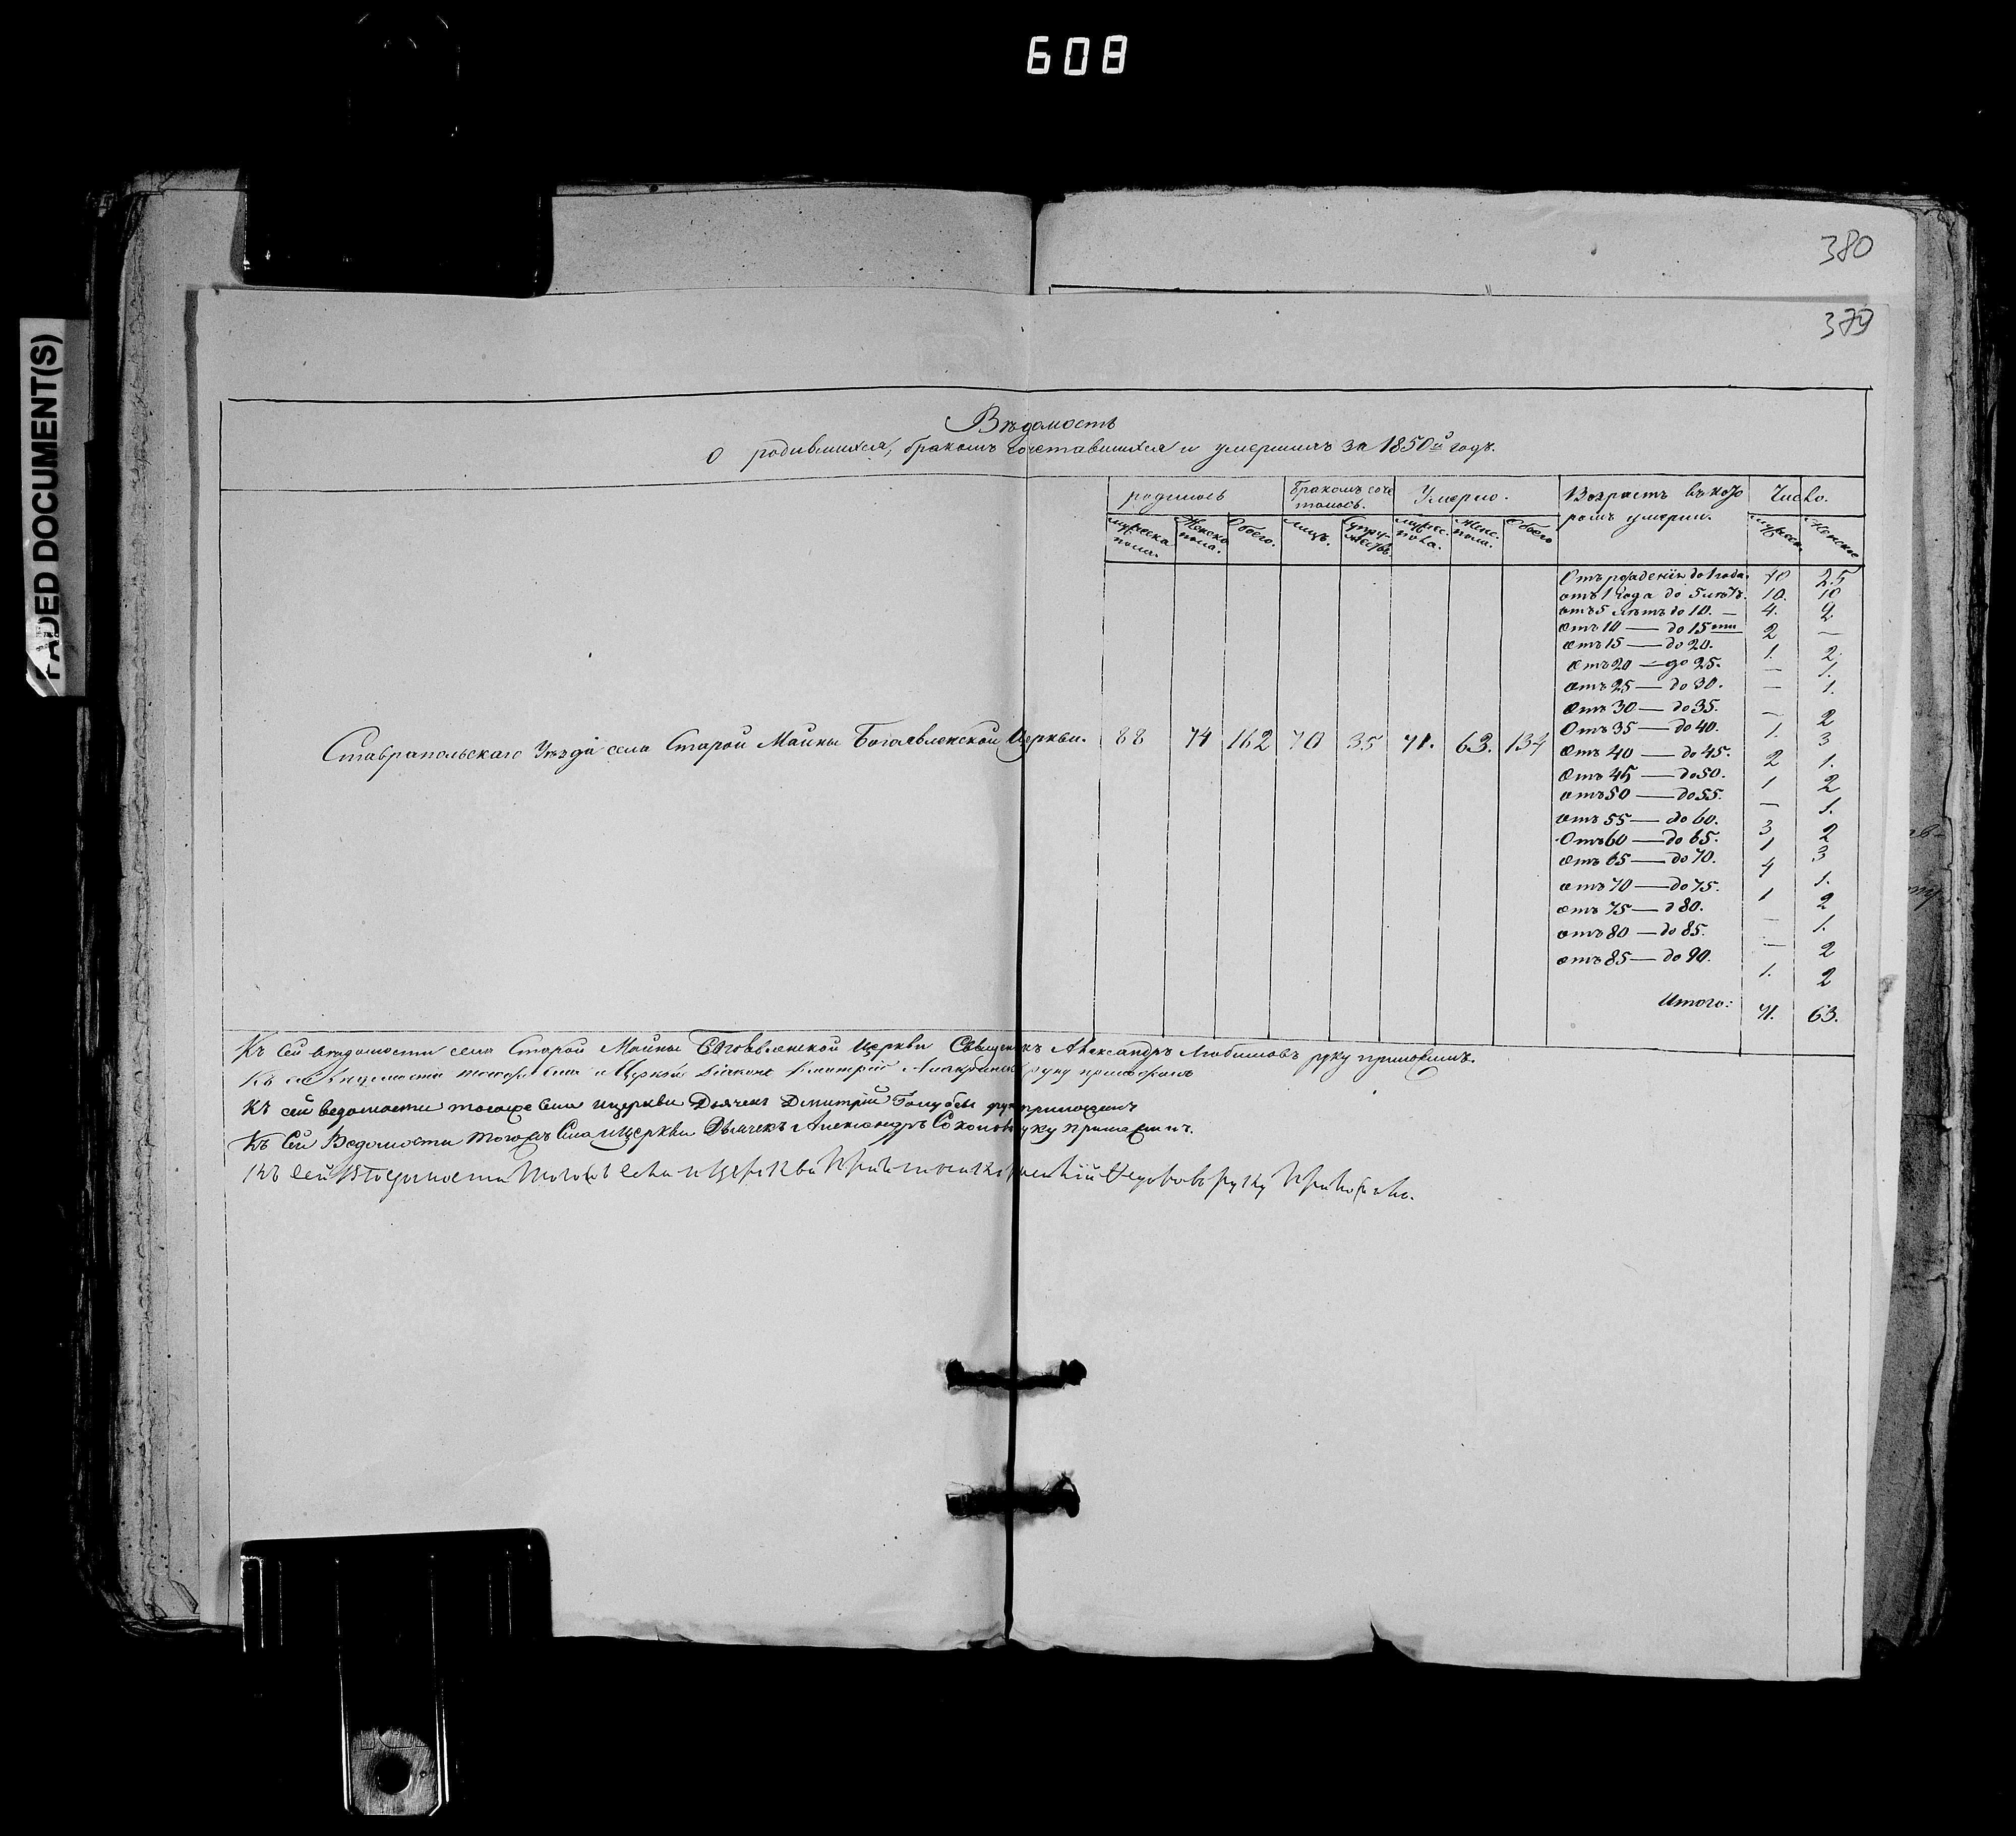 608
FADED DOCUMENT(S)
380
379
Вѣдомость
О родившихся, бракомъ сочетавшихся и умершихъ за 1850й годъ.
родилось
бракомъ соче
талось.
Умерло.
Возрастъ въ кото
ромъ умерли.
Число.
мужеска
пола.
Женска
пола.
Обоего.
лицъ.
супру-
жествъ.
мужес.
пола.
женс.
пола.
Обоего
мужеск.
Женское
Ставрапольскаго Уѣзда села Старой Майны Богоявленской Церкви. 88 74 162 70 35 71. 63. 134
Отъ рожденія до 1 года. 40 25
отъ 1 года до 5 лѣтъ. 10. 10
отъ 5 лѣтъ до 10. — 4. 2
отъ 10 — до 15 ти 2 —
отъ 15 — до 20. 1. 2.
отъ 20 — до 25. — 1.
отъ 25 — до 30. — 1.
отъ 30 — до 35. — 2
Отъ 35 — до 40. 1. 3
Отъ 40 — до 45. 2 1.
Отъ 45 — до 50. 1 2
отъ 50 — до 55. — 1.
отъ 55 — до 60. 3 2
Отъ 60 — до 65. 1 3
отъ 65 — до 70. 4 1.
отъ 70 — до 75. 1 2
отъ 75 — д 80. — 1.
отъ 80 — до 85. — 2
отъ 85 — до 90. 1. 2
Итого: 71. 63.
Къ сей вѣдомости села Старой Майны Богоявленской Церкви Священникъ Александръ Любимовъ руку приложилъ.
Къ сей вѣдомости тогожъ села и Церкви Діаконъ Димитрій руку приложилъ
Къ сей ведомости тогоже села и церкви Дьячекъ Дмитрій Голубевъ руку приложилъ
Къ Сей Ведомости тогожъ Села и Церкви Дьячекъ Александръ Соколовъ руку приложилъ.
Къ сей Вѣдомости тогожъ села и Церкви Ѳедоровъ руку приложилъ.